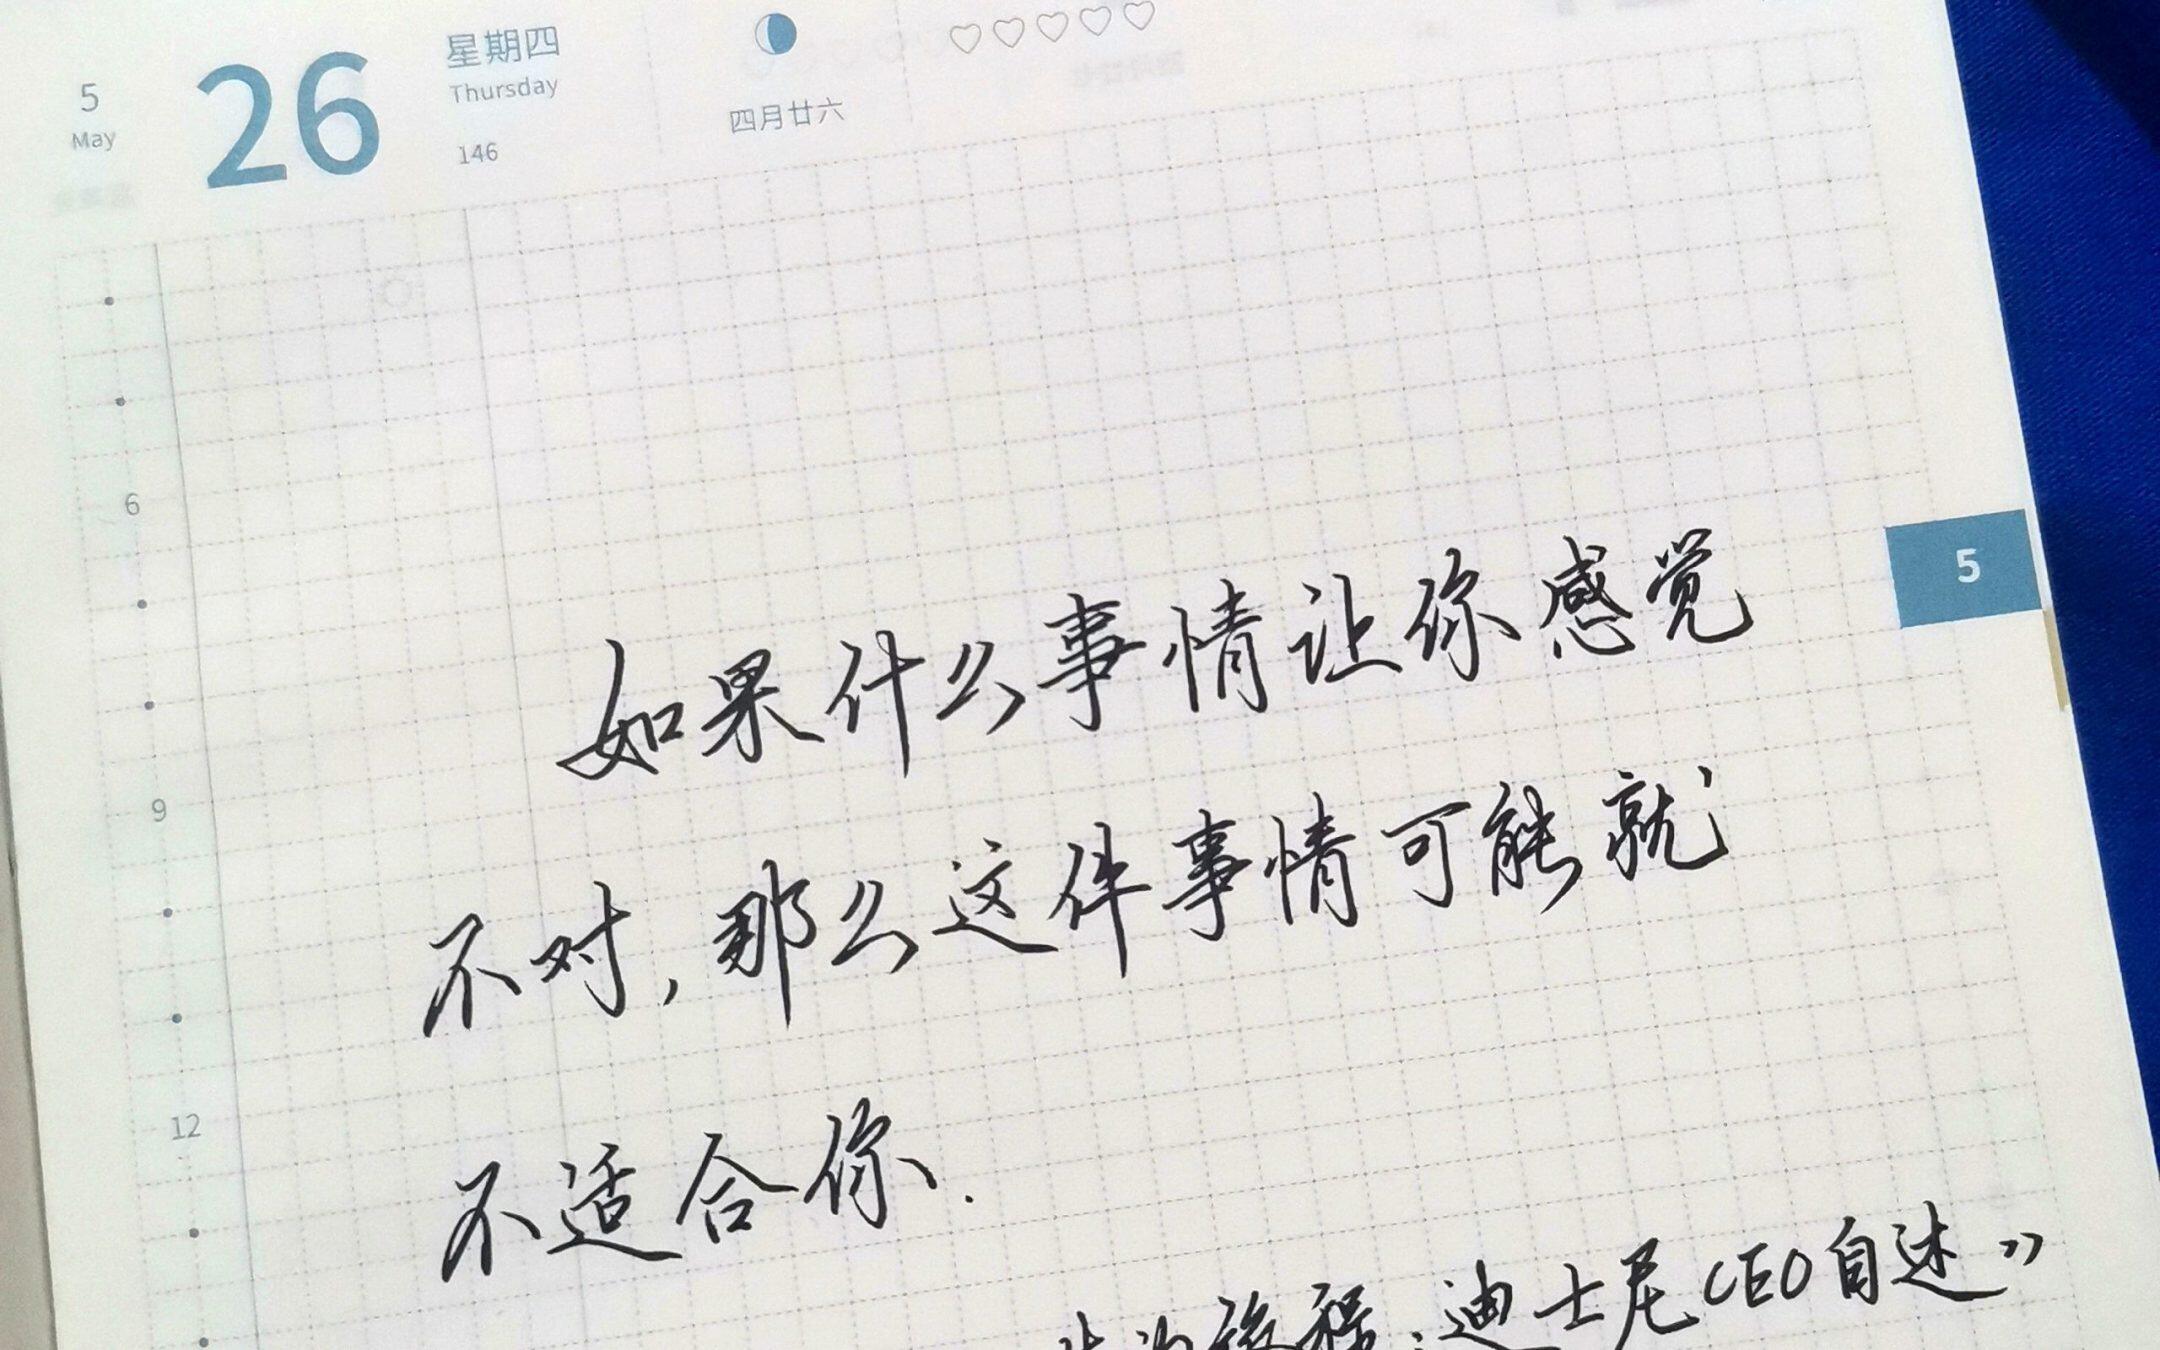 5
May
26
星期四
Thursday
146
四月廿六
6
5
如果什么事情让你感觉
9
不对，那么这件事情可能就
12
不适合你.
旅程：迪士尼CEO自述》